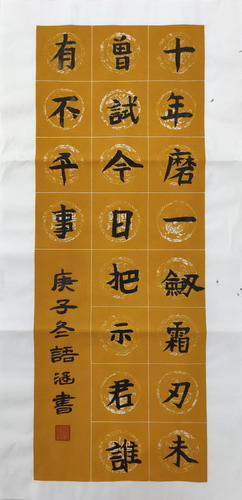 十年磨一劔霜刃未
曾試今日把示君誰
有不平事
庚子冬語涵書